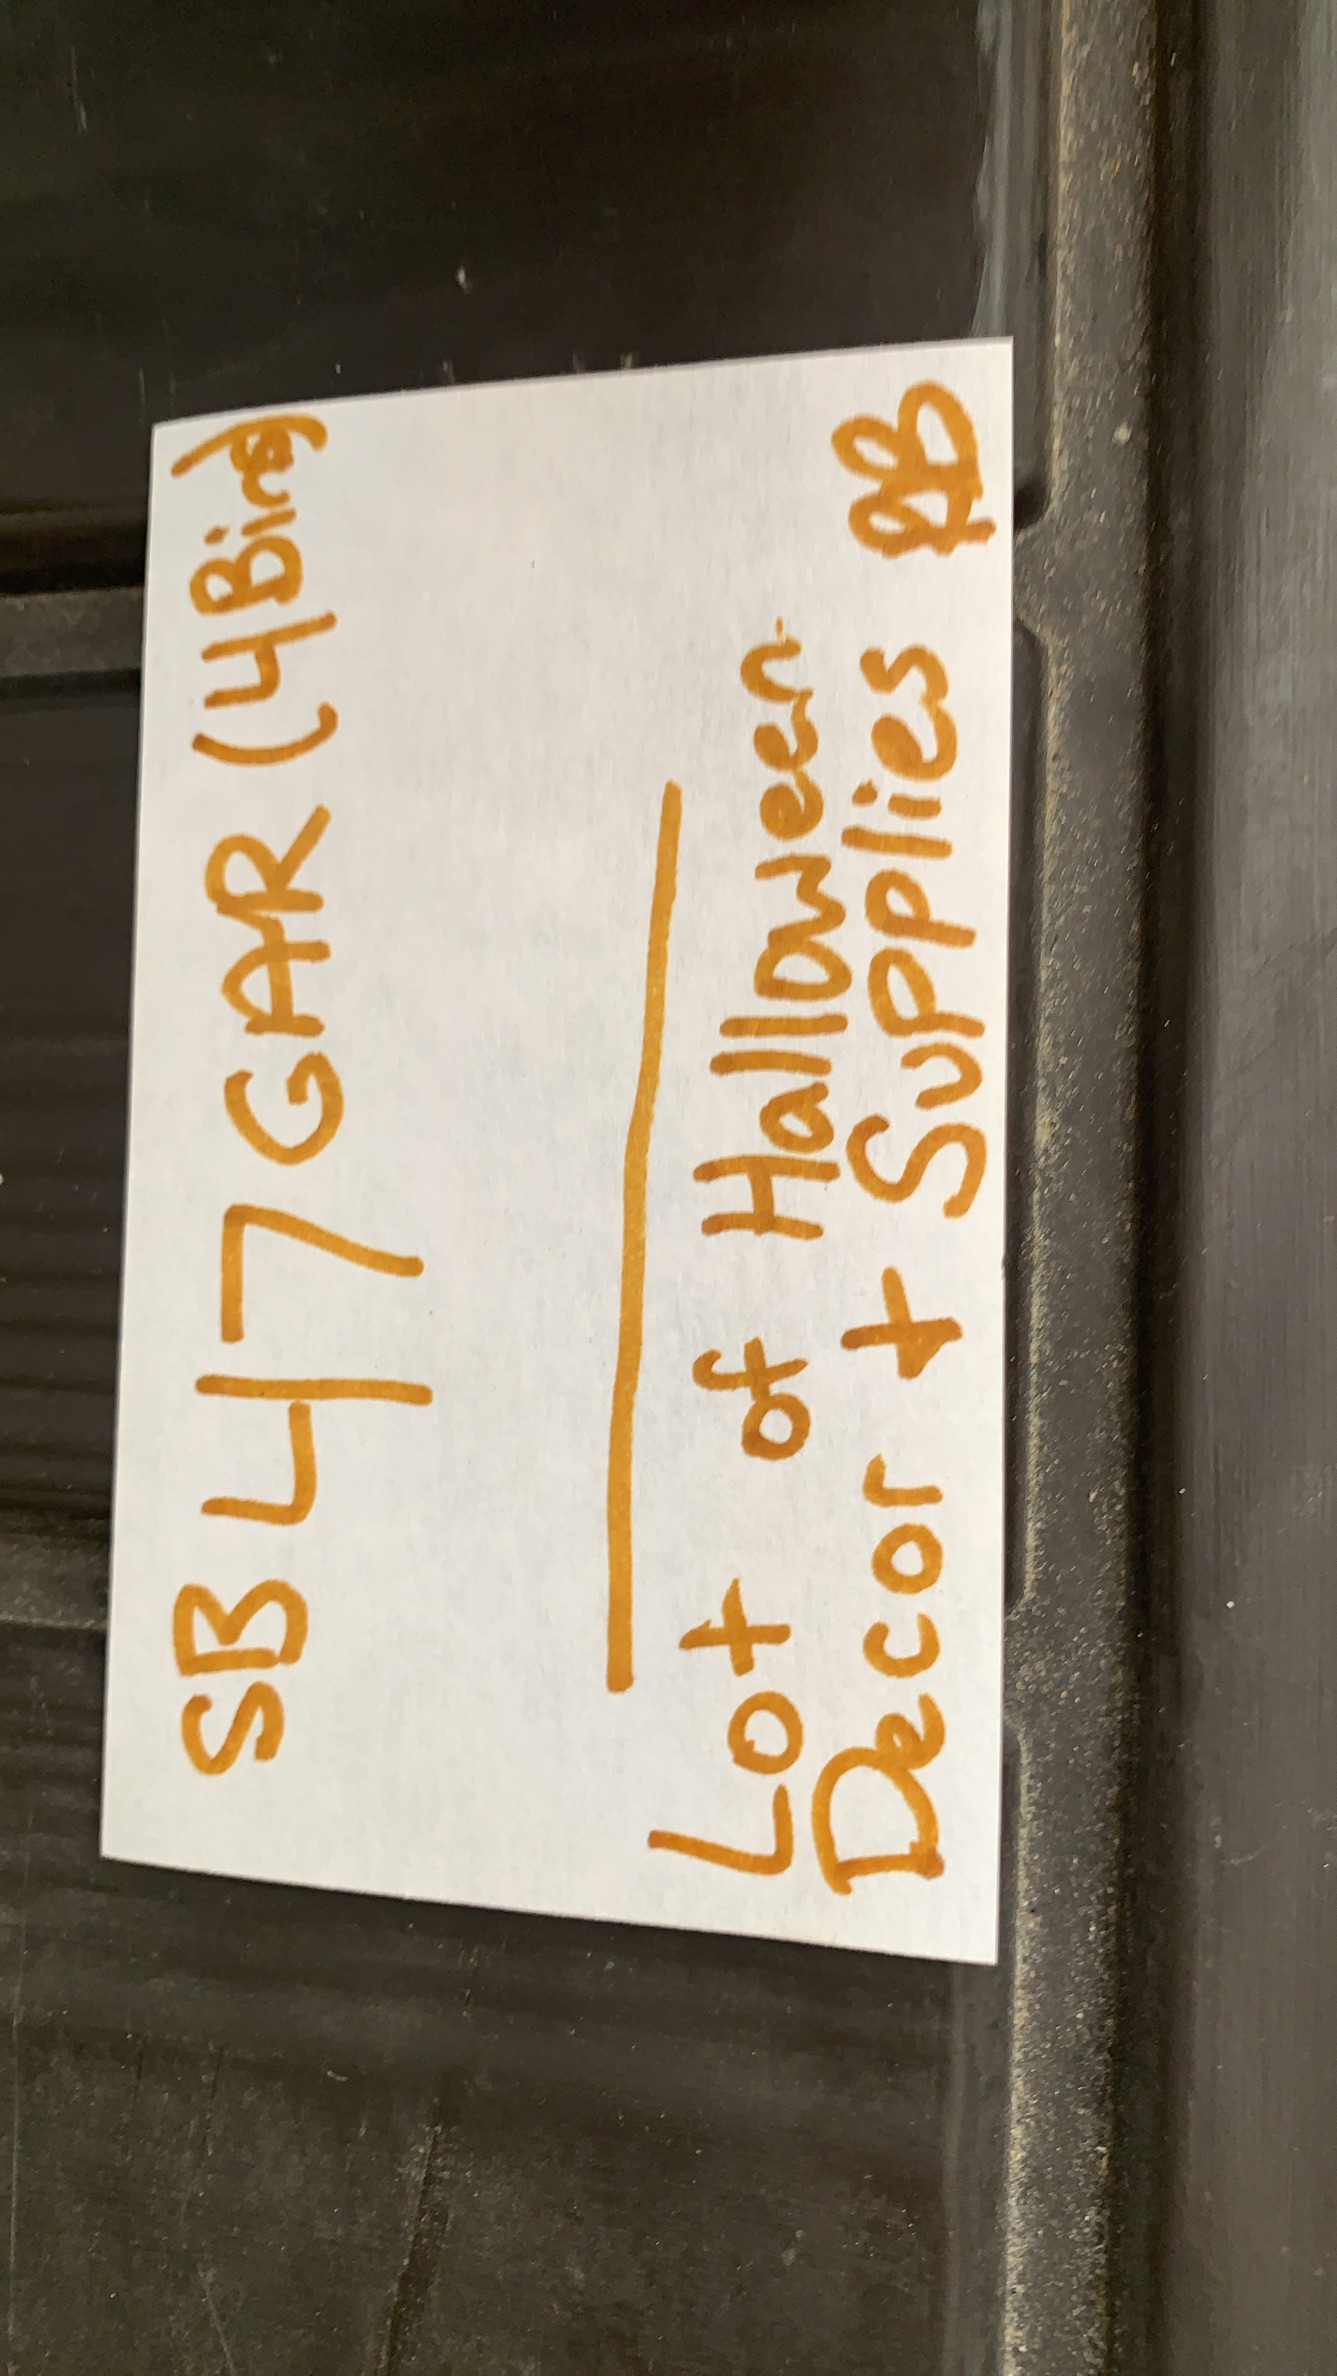 SB 47 GAR (4 Bins)
Lot of Halloween
Decor + Supplies